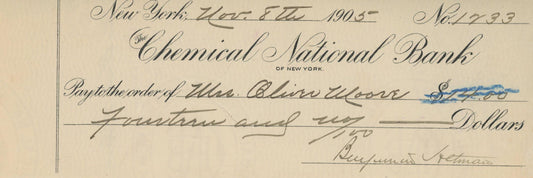 New York, Nov. 8th 1905 No. 1733
The Chemical National Bank
OF NEW YORK.
Pay to the order of Mrs. Olive Moore $14.00
Fourteen and no/100 Dollars
Benjamin Altman